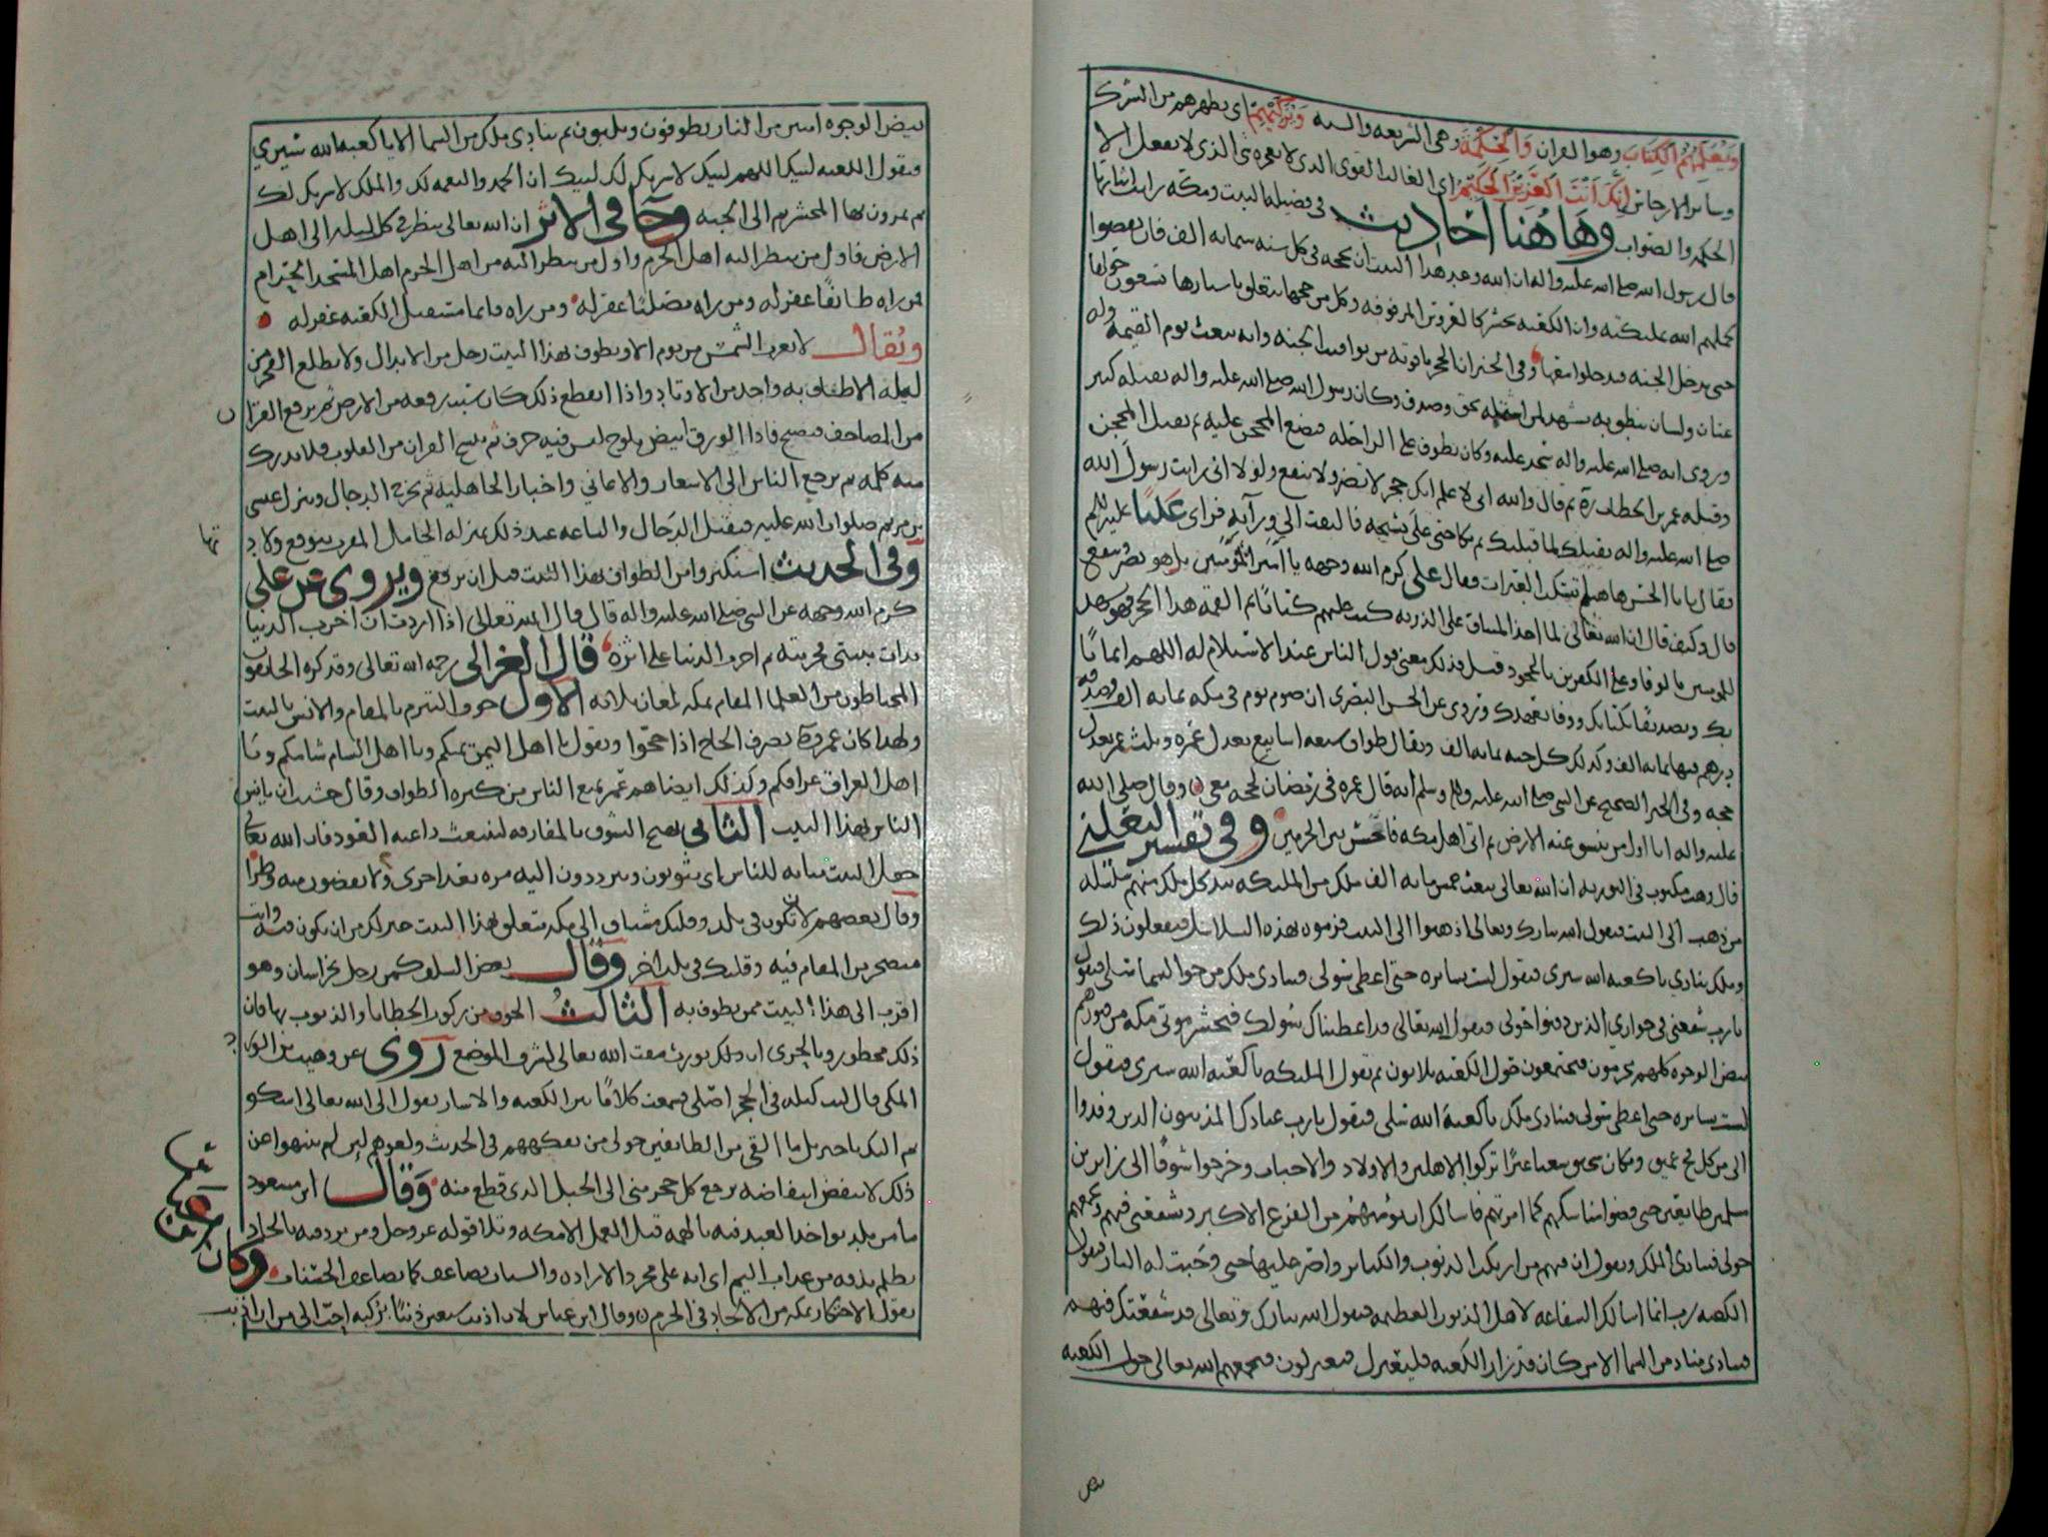 ويعلمهم الكتاب وهو القران والحكمة وهى الشريعه والسنه ويزكيهم اى يطهرهم من الشرك
وسائر الارجاس انك انت العزيز الحكيم اى الغالب القوى الذى لا يعجزه شى الذى لا يفعل الا
الحكمه والصواب وهاهنا احاديث فى فضيله البيت ومكه
قال رسول الله صلى الله عليه واله ان الله وعد هذا البيت ان يحجه فى كل سنه ستمايه الف فان نقصوا
كملهم الله بملئكته وان الكعبه تحشر كالعروس المزفوفه وكل من حجها يتعلق باستارها يسعون حولها
حتى تدخل الجنه فيدخلوا معها وفى الخبر ان الحجر ياقوته من يواقيت الجنه وانه يبعث يوم القيمه وله
عينان ولسان ينطق به يشهد لمن استلمه بحق وصدق وكان رسول الله صلى الله عليه واله يقبله كثير
وروى انه صلى الله عليه واله سجد عليه وكان يطوف على الراحله فيضع المحجن عليه ثم يقبل المحجن
وقبله عمر بن الخطاب ثم قال والله انى لا علم انك حجر لا تضر ولا ينفع ولولا انى رايت رسول الله
صلى الله عليه واله يقبلك لما قبلتك ثم بكا حتى على نشيجه فالتفت الى ورآيه فراى عليا عليه السلم
فقال يابا الحسن هاهنا تسكب العبرات فقال على كرم الله وجهه يا امير المؤمنين بل هو يضر وينفع
قال وكيف قال ان الله تعالى لما اخذ الميثاق على الذريه كتب عليهم كتابا ثم القمه هذا الحجر فهو يشهد
للمومنين بالوفا وعلى الكفرين بالجحود قيل فذلك معنى قول الناس عند الاستلام له اللهم ايمانا
بك وتصديقا بكتابك ووفا بعهدك وروى عن الحسن البصرى ان صوم يوم فى مكه بمايه الف وصدقه
درهم فيها بمايه الف وكذلك كل حسنه بمايه الف ويقال طواف سبعه اسابيع يعدل عمره وثلث عمر يعدل
حجه وفى الخبر الصحيح عن النبى صلى الله عليه واله وسلم انه قال عمره فى رمضان كحجه معى وقال صلى الله
عليه واله انا اول من تنشق عنه الارض ثم اتى اهل مكه فاحشر بين الحرمين وفى تفسير الثعلبى
قال وهب مكتوب فى التوريه ان الله تعالى يبعث خمس مايه الف ملك من الملئكه بيد كل ملك منهم سلسله
من ذهب الى البيت فيقول الله تبارك وتعالى اذهبوا الى البيت فزموه بهذه السلاسل فيفعلون ذلك
وملك ينادي يا كعبه الله سيرى فيقول لست بسايره حتى اعطى سولى فينادى ملك من جو السما سلى فيقول
يا رب شفعنى فى جوارى الذين دفنوا حولى فيقول الله تعالى قد اعطيتك سولك فيحشر موتى مكه من قبورهم
بيض الوجوه كلهم محرمون فيجتمعون حول الكعبه يلبون ثم تقول الملئكه يا كعبه الله سيرى فيقول
لست بسايره حتى اعطى سولى فينادى ملك يا كعبة الله سلى فيقول يا رب عبادك المذنبون الذين وفدوا
الى من كل فج عميق ومكان سحيق شعثا غبرا تركوا الاهلين والاولاد والاحباب وخرجوا شوقا الى زايرين
مسلمين طايفين حتى قضوا مناسكهم كما امرتهم فاسالك ان تؤمنهم من الفزع الاكبر وشفعنى فيهم وتجمعهم
حولى فينادى الملك ويقول ان فيهم من ارتكب الذنوب والكباير واصر عليها حتى وجبت له النار فيقول
الكعبه يا رب انما اسالك الشفاعه لاهل الذنوب العظيمه فيقول الله تبارك وتعالى قد شفعتك فيهم
فينادى مناد من السما الا من كان قد زار الكعبه فليعتزل فيعتزلون فيجمعهم الله تعالى حول الكعبه
بيض الوجوه امنين من النار يطوفون ويلبون ثم ينادى ملك من السما الا يا كعبه الله سيرى
فيقول الكعبه لبيك اللهم لبيك لا شريك لك لبيك ان الحمد والنعمه لك والملك لا شريك لك
ثم يمرون بها المحشر ثم الى الجنه وجا فى الاثر ان الله تعالى ينظر فى كل ليله الى اهل
الارض فاول من ينظر اليه اهل الحرم واول من ينظر اليه من اهل الحرم اهل المسجد الحرام
فمن راه طائفا غفر له ومن راه مصليا غفر له ومن راه قايما مستقبل الكعبه غفر له
ويقال لا تغرب الشمس من يوم الا ويطوف بهذا البيت رجل من الابدال ولا يطلع الفجر من
ليله الا طاف به واحد من الاوتاد واذا انقطع ذلك كان سبب رفعه من الارض ثم يرفع القران
من المصاحف فيصبح فاذا الورق ابيض يلوح ليس فيه حرف ثم ينسخ القران من القلوب فلا يدرك
منه كلمه ثم يرجع الناس الى الاشعار والاغانى واخبار الجاهليه ثم يخرج الدجال وينزل عيسى
بن مريم صلوات الله عليه فيقتل الدجال والساعه عند ذلك بمنزله الحامل المقرب يتوقع ولاد
تها
وفى الحديث استكثروا من الطواف بهذا البيت قبل ان يرفع ويروى عن على
كرم الله وجهه عن النبى صلى الله عليه واله قال قال الله تعالى اذا اردت ان اخرب الدنيا
بدات ببيتى فخربته ثم اخرب الدنيا على اثره قال الغزالى رحمه الله تعالى وقد كره الخايفون
المحتاطون من العلما المقام بمكه لمعان ثلاثه الاول خوف التبرم بالمقام والانس بالبيت
ولهذا كان عمر يصرف الحاج اذا حجوا ويقول يا اهل اليمن يمنكم ويا اهل الشام شامكم ويا
اهل العراق عراقكم وكذلك ايضا هم عمر بمنع الناس من كثره الطواف وقال خشيت ان يانس
الناس بهذا البيت الثانى تهيج الشوق بالمفارقه لتنبعث داعيه العود فان الله تعالى
جعل البيت مثابه للناس اى يثوبون ويترددون اليه مره بعد اخرى ولا يقضون منه وطرا
وقال بعضهم لان تكون فى بلد وقلبك مشتاق الى مكه متعلق بهذا البيت خير لك من ان تكون فيه وانت
متضجر من المقام فيه وقلبك فى بلد اخر وقال بعض السلف كم من رجل بخراسان وهو
اقرب الى هذا البيت ممن يطوف به الثالث الخوف من ركوب الخطايا والذنوب بها فان
ذلك محظور وبالحرى ان ذلك يورث مقت الله تعالى لشرف الموضع روى عن وهيب بن الورد
المكى قال كنت ليله فى الحجر اصلى فسمعت كلاما بين الكعبه والاستار يقول الى الله تعالى اشكو
ثم اليك يا جبريل ما القى من الطايفين حولى من تفكههم فى الحديث ولغوهم لئن لم ينتهوا عن
ذلك لانتفض انتفاضه يرجع كل حجر منى الى الجبل الذى قطع منه وقال ابن مسعود
ما من بلد يواخذ العبد فيه بالهمه قبل العمل الا مكه وتلا قوله عز وجل ومن يرد فيه بالحاد
بظلم نذقه من عذاب اليم اى انه على مجرد الاراده والسيات يضاعف كما يضاعف الحسنات وكان
يقول الاحتكار بمكه من الالحاد فى الحرم وقال ابن عباس لان اذنب سبعين ذنبا بركبه احب الى من ان اذنب